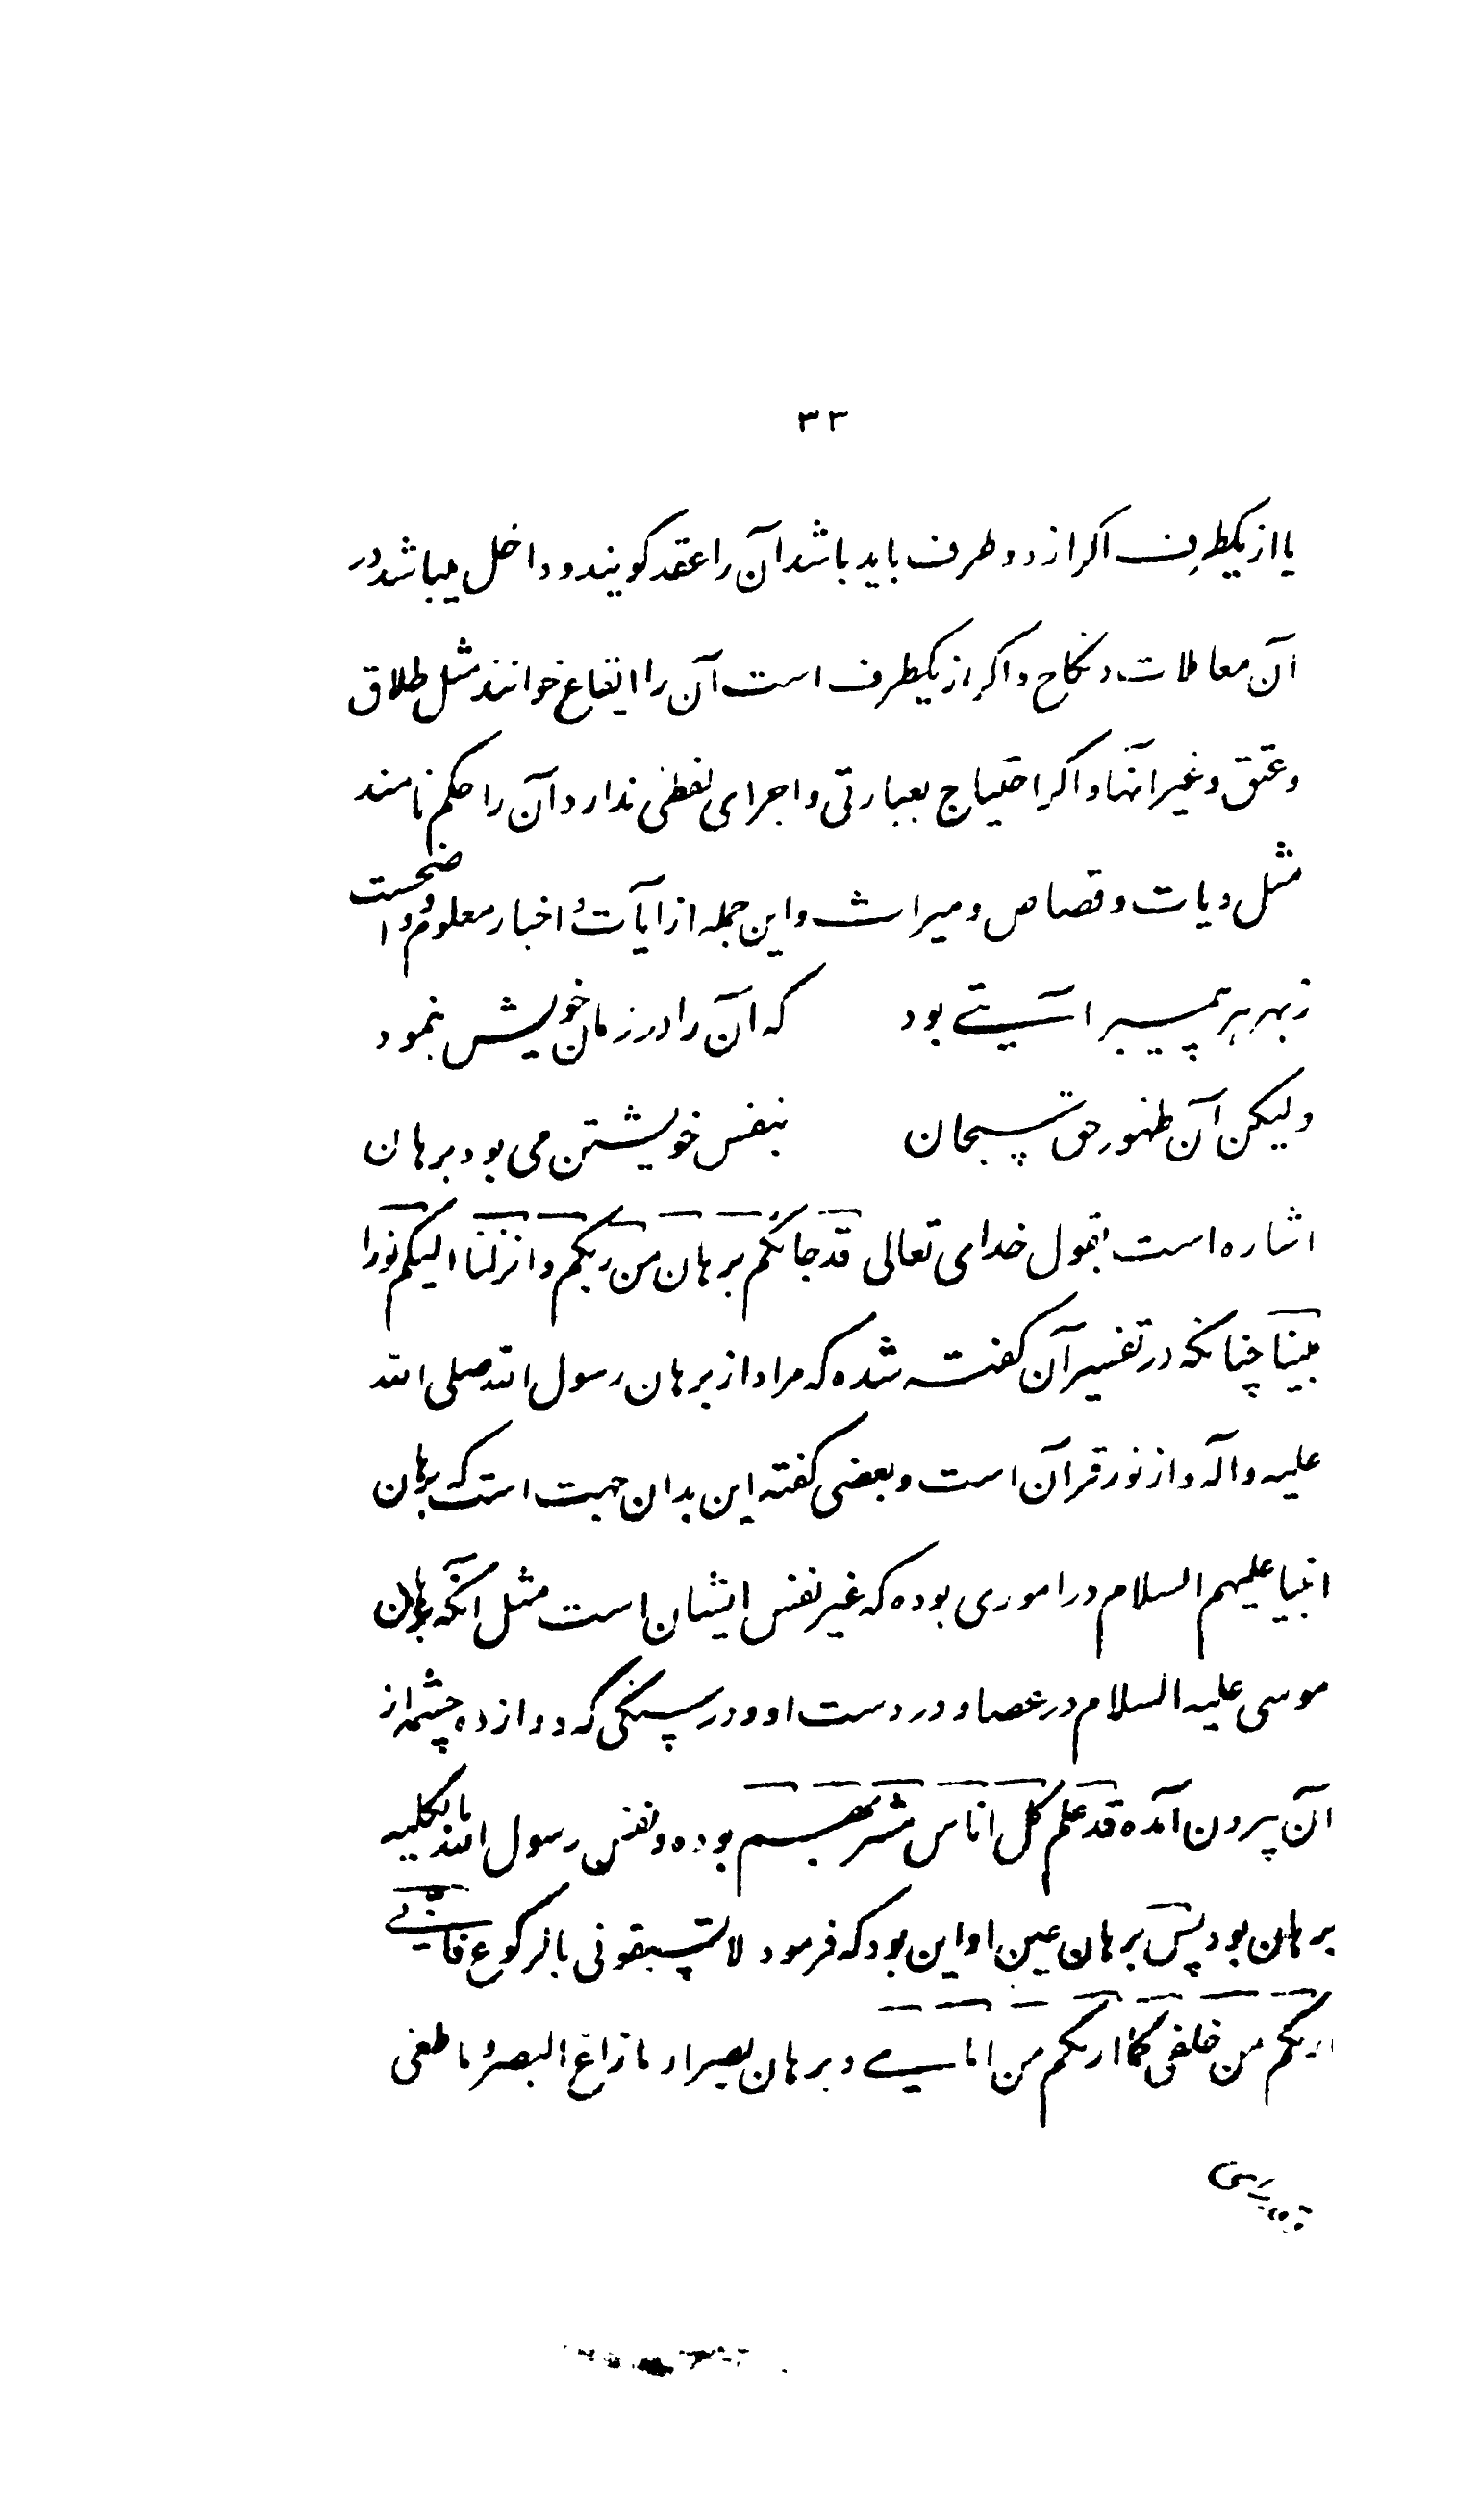 ۳۳
یا از یکطرف اکر از دو طرف باید باشد آن را عقد کویند و داخل میباشد در
آن معاملات و نکاح و اکر از یکطرف است آن را ایقاع خوانند مثل طلاق
و عتق و غیر آنها و اکر احتیاج بعبارتی و اجرای لفظی ندارد آن را حکم نامند
مثل دیات و قصاص و میراث و این جمله از آیات و اخبار معلوم و واضحست
ز بهر هر پیمبر آیتی بود که آن را در زمان خویش بنمود
ولیکن آن ظهور حق سبحان بنفس خویشتن می بود برهان
اشاره است بقول خدای تعالی قد جائکم برهان من ربکم و انزلنا الیکم نورا
مبینا چنانکه در تفسیر آن کفته شده که مراد از برهان رسول الله صلی الله
علیه و آله و از نور قرآن است و بعضی کفته این بدان جهت است که برهان
انبیا علیهم السلام در اموری بوده که غیر نفس ایشان است مثل آنکه برهان
موسی علیه السلام در عصا و در دست او و در سنکی که دوازده چشمه از
آن بیرون آمده قد علم کل اناس مشربهم بوده و نفس رسول الله بالکلیه
برهان بود پس برهان عین او این بود که فرمود لا تسبقونی بالرکوع فانی
اریکم من خلفی کما اریکم من امامی و برهان بصیر او ما زاغ البصر و ما طغی